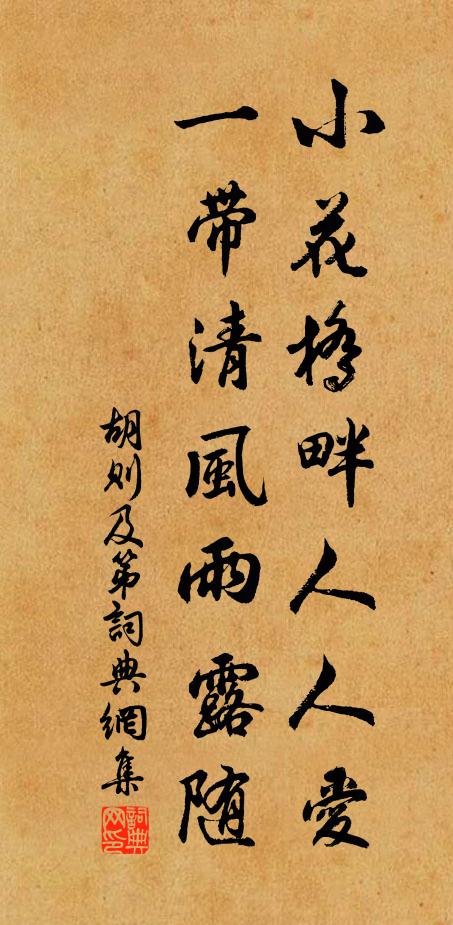 小花橋畔人人愛
一帶清風雨露随
胡则及第詞典網集
詞典网印